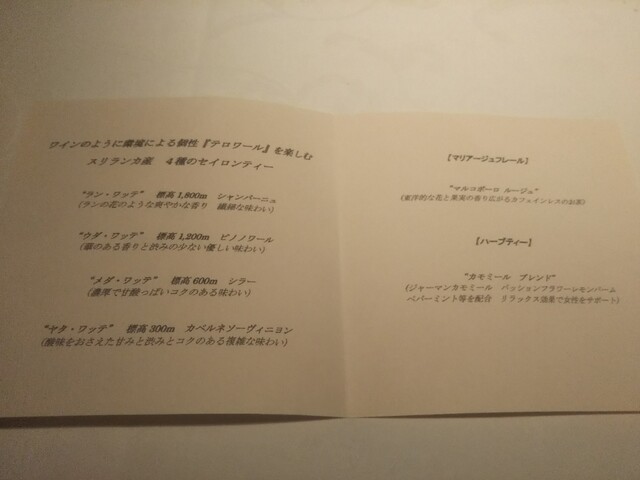 ワインのように産域による個性『テロワール』を楽しむ
スリランカ産 4種のセイロンティー
“ラン・ワッテ” 標高1,800m シャンパーニュ
(ランの花のような爽やかな香り 繊細な味わい)
“ウダ・ワッテ” 標高1,200m ピノノワール
(華のある香りと渋みの少ない優しい味わい)
“メダ・ワッテ” 標高600m シラー
(濃厚で甘酸っぱいコクのある味わい)
“ヤタ・ワッテ” 標高300m カベルネソーヴィニヨン
(酸味をおさえた甘みと渋みとコクのある複雑な味わい)
【マリアージュフレール】
“マルコポーロ ルージュ”
(東洋的な花と果実の香り広がるカフェインレスのお茶)
【ハーブティー】
“カモミール ブレンド”
(ジャーマンカモミール パッションフラワーレモンバーム
ペパーミント等を配合 リラックス効果で女性をサポート)